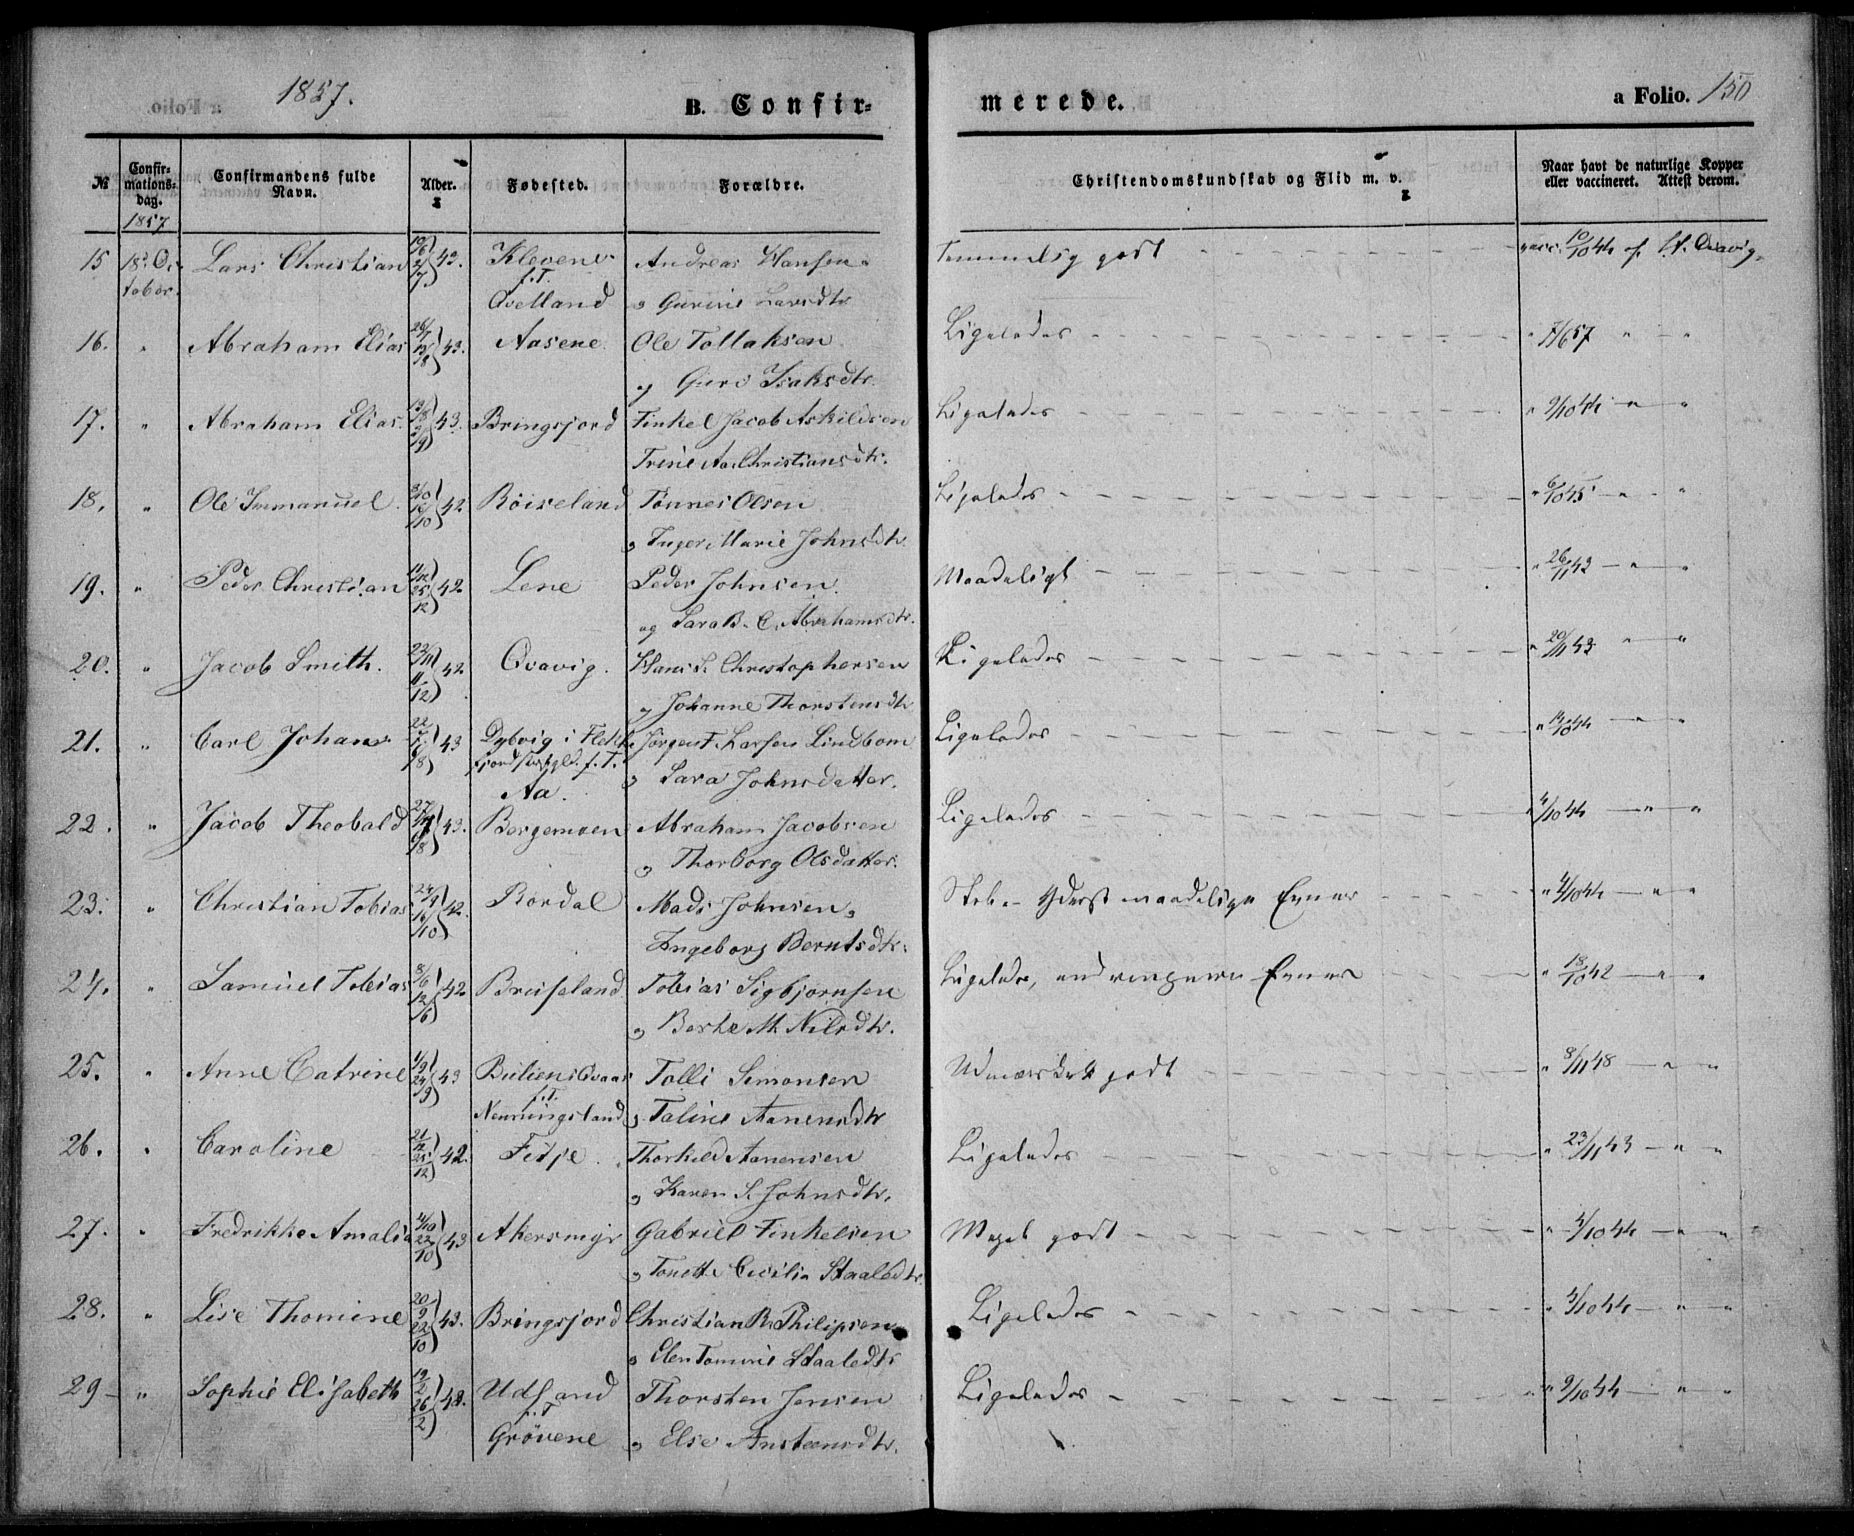 1857.
B. Confir-
merede.
a Folio. 150
No
Confir-
mations-
dag.
1857
Confirmandens fulde
Navn.
Alder.
Fødested.
Forældre.
Christendomskundskab og Flid m. v.
Naar havt de naturlige Kopper
eller vaccineret. Attest derom.
15 18d Oc- Lars Christian 43. Klevene Andreas Hansen Temmelig godt vacc. 10/10 44 af
tober. f.T.
Qvelland og Gurine Larsdtr
16. " Abraham Elias 43. Aasene Ole Tollaksen Ligeledes " 7/6 57 " "
og Guri Isaksdtr.
17. " Abraham Elias. 43. Bringsjord Tinkel Jacob Askildsen Ligeledes " 9/10 44 " "
Trine Aa. Christiansdtr.
18. " Ole Immanuel. 42 Röiseland Tönnes Olsen Ligeledes " 6/10 45 " "
og Inger Marie Johnsdtr.
19. " Peder Christian 42 Lene Peder Johnsen Maadeligt " 26/11 43 " "
og Sara B. E. Abrahamsdtr.
20. " Jacob Smith. 42 Qvavig. Hans S. Christophersen Ligeledes " 20/11 43 " "
og Johanne Thorstensdtr
21. " Carl Johan 43 Dybvig i Flekke- Jörgen T. Larsen Lindbom Ligeledes " 14/10 44 " "
f.T. og Sara Johnsdatter.
Aa.
22. " Jacob Theobald 43. Bergemoen Abraham Jacobsen Ligeledes " 4/10 44 " "
og Thorborg Olsdatter.
23. " Christian Tobias 42. Rördal Mads Johnsen Yderst maadelige Evner " 4/10 44 " "
Ingeborg Berntsdtr.
24. " Samuel Tobias 42 Breiseland Tobias Sigbjørnsen Ligeledes, end ringere Evner " 18/10 42 " "
og Berthe M. Nilsdtr.
25. " Anne Catrine 43 Tolli Simonsen Udmærket godt " 8/11 48 " "
f.T.
Nenningsland og Taline Aanensdtr
26. " Caroline 42. Fidje Thorkild Aanensen Ligeledes " 23/11 43 " "
og Karen S. Johnsdtr.
27. " Fredrikke Amalia 4/10 22/10 43 Akersmyr Gabriel Tinkelsen Meget godt " 4/10 44 " "
og Tonette Cecilia Staaledtr.
28. " Lise Thomine 20/9 22/10 43. Bringsjord Christian R. Philipsen Ligeledes " 3/10 44 " "
og Elen Tomine Staaledtr
29 " Sophie Elisabeth 12/2 26/2 43. Udland Thorsten Jensen Ligeledes " 9/10 44 " "
f.T
Grövene og Else Anstensdtr.